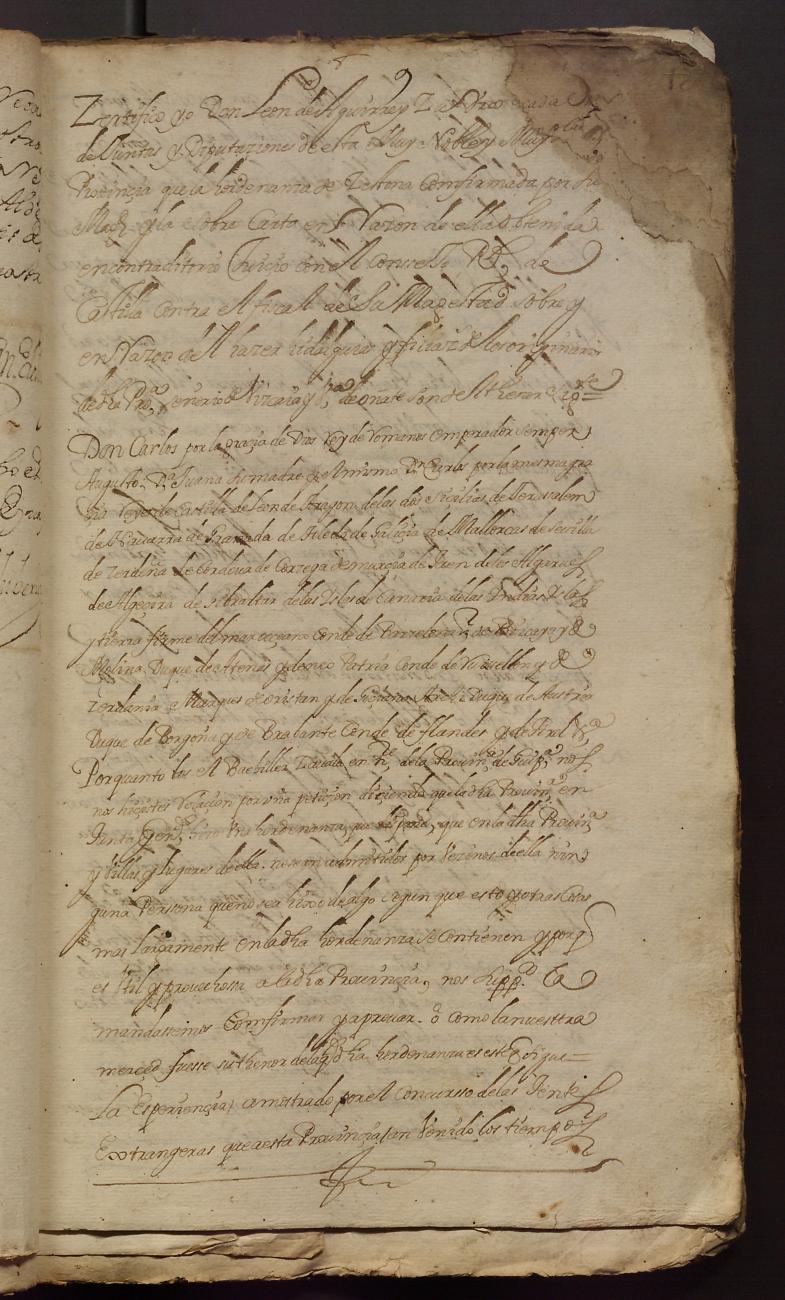 Zertifico yo Don Leon de Aguirre y Z
de Juntas y Diputaziones de esta Muy Noble y Muy
Provinçia que la hordenanza de Zestona Confirmada por su
Magd y la Sobre Carta en Razon de ella obtenida
en contraditorio Juiçio con el Consejo Rl de
Castilla contra el fiscal de Su Magestad sobre y
en Razon de el hazer hidalguias y filiaz de los originarios
de dha Proa, señorio de Vizcaia y de oñate son de el thenor sigte =
Don Carlos por la graçia de Dios Rey de Romanos emprador semper
Augusto. Da Juana su madre y el mismo Dn Carlos por la mesma gra
çia Reyes de Castilla de Leon de Aragon de las dos Sicilias de Jerusalem
de Navarra de Granada de Toledo de Galiçia de Mallorcas de sevilla
de Zerdeña de Cordova de Corzega de murçia de Jaen de los Algarves
de Algeçira de Gibraltar de las Yslas de Canaria de las Yndias Yslas
y tierra firme del mar oçeano Conde de Barzelona de Vizcaya y de
Molina Duque de Atenas y de neo Patria Conde de Ruisellon y de
Zerdania Marques de oristan y de Goçiano Archiduque de Austria
Duque de Borgoña y de Brabante Conde de flandes y de Tirol &a
Por quanto bos el Bachiller Zavala en ne de la Provinçia de Guipa nos
nos hiçistes Relaçion por vna petiçion diziendo que la dha Provina en
Junta Genl hizo vna hordenanza que en la dha Provina
y villas y lugares de ella no sean admitidos por Vezinos de ella nin
guna Persona que no sea hixo dealgo segun que esto y otras Cosas
mas largamente en la dha hordenanza se Contienen y porq
es Vtil y provechosa a la dha Provinçia, nos suppdo la
mandassemos Comfirmar y aprovar. o como la nuesttra
merçed fuesse su thenor de la qual dha hordenanza es este q se sigue =
La Esperiençia, a mostrado por el Concursso de las Jentes
Extrangeras que a esta Provinçia, an Venido los tiempos